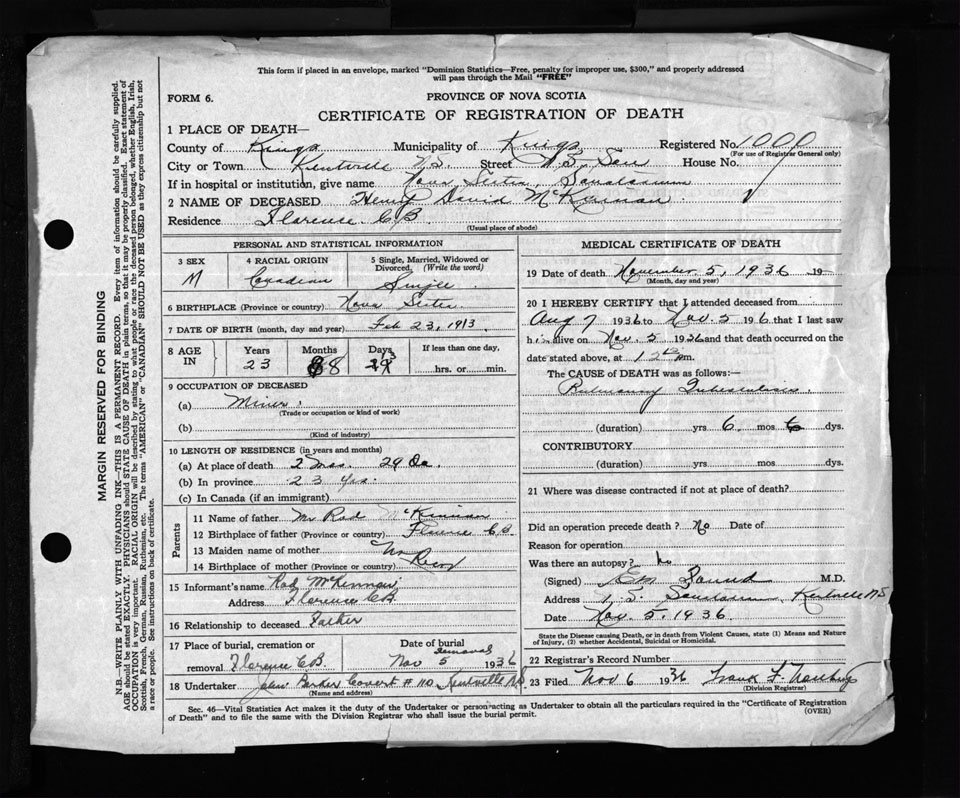 This form if placed in an envelope, marked "Dominion Statistics—Free, penalty for improper use, $300," and properly addressed
will pass through the Mail "FREE"
FORM 6.
PROVINCE OF NOVA SCOTIA
CERTIFICATE OF REGISTRATION OF DEATH
1 PLACE OF DEATH—
County of Kings Municipality of Kings Registered No. 1000
(For use of Registrar General only)
City or Town Kentville N.S. Street N.S. San House No.
If in hospital or institution, give name Nova Scotia Sanatorium
2 NAME OF DECEASED Henry David McKinnon
Residence Florence C.B.
(Usual place of abode)
PERSONAL AND STATISTICAL INFORMATION
3 SEX M
4 RACIAL ORIGIN Canadian
5 Single, Married, Widowed or Divorced, (Write the word) Single
6 BIRTHPLACE (Province or country) Nova Scotia
7 DATE OF BIRTH (month, day and year) Feb 23, 1913
8 AGE IN Years 23 Months 8 Days If less than one day, hrs. or min.
9 OCCUPATION OF DECEASED
(a) Miner
(Trade or occupation or kind of work)
(b)
(Kind of industry)
10 LENGTH OF RESIDENCE (in years and months)
(a) At place of death 2 Mos. 29 Da.
(b) In province 23 Yrs.
(c) In Canada (if an immigrant)
Parents
11 Name of father Mr Rod McKinnon
12 Birthplace of father (Province or country) Florence C.B.
13 Maiden name of mother No
14 Birthplace of mother (Province or country) Record
15 Informant's name Rod McKinnon
Address Florence C.B.
16 Relationship to deceased Father
17 Place of burial, cremation or removal Florence C.B.
Date of burial Removal Nov 5 1936
18 Undertaker John Parker Covert #110 Kentville N.S.
(Name and address)
MEDICAL CERTIFICATE OF DEATH
19 Date of death November 5, 1936 19
(Month, day and year)
20 I HEREBY CERTIFY that I attended deceased from
Aug 7 1936 to Nov. 5 1936 that I last saw
h im alive on Nov. 5 1936 and that death occurred on the
date stated above, at 12 m.
The CAUSE of DEATH was as follows:—
Pulmonary Tuberculosis
(duration) yrs 6 mos dys.
CONTRIBUTORY
(duration) yrs. mos. dys.
21 Where was disease contracted if not at place of death?
Did an operation precede death? No Date of
Reason for operation
Was there an autopsy? No
(Signed) M.D.
Address N.S. Sanatorium, Kentville N.S.
Date Nov. 5, 1936
State the Disease causing Death, or in death from Violent Causes, state (1) Means and Nature
of Injury, (2) whether Accidental, Suicidal or Homicidal.
22 Registrar's Record Number
23 Filed Nov 6 1936
(Division Registrar)
Sec. 46—Vital Statistics Act makes it the duty of the Undertaker or person acting as Undertaker to obtain all the particulars required in the "Certificate of Registration
of Death" and to file the same with the Division Registrar who shall issue the burial permit. (OVER)
MARGIN RESERVED FOR BINDING
N.B.—WRITE PLAINLY WITH UNFADING INK—THIS IS A PERMANENT RECORD. Every item of information should be carefully supplied.
AGE should be stated EXACTLY. PHYSICIANS should STATE CAUSE OF DEATH in plain terms, so that it may be properly classified. Exact statement of
OCCUPATION is very important. RACIAL ORIGIN will be described by stating to what people or race the deceased person belonged, whether English, Irish,
Scottish, French, German, Russian, Ruthenian, etc. The terms "AMERICAN" or "CANADIAN" SHOULD NOT BE USED as they express citizenship but not
a race or people. See instructions on back of certificate.